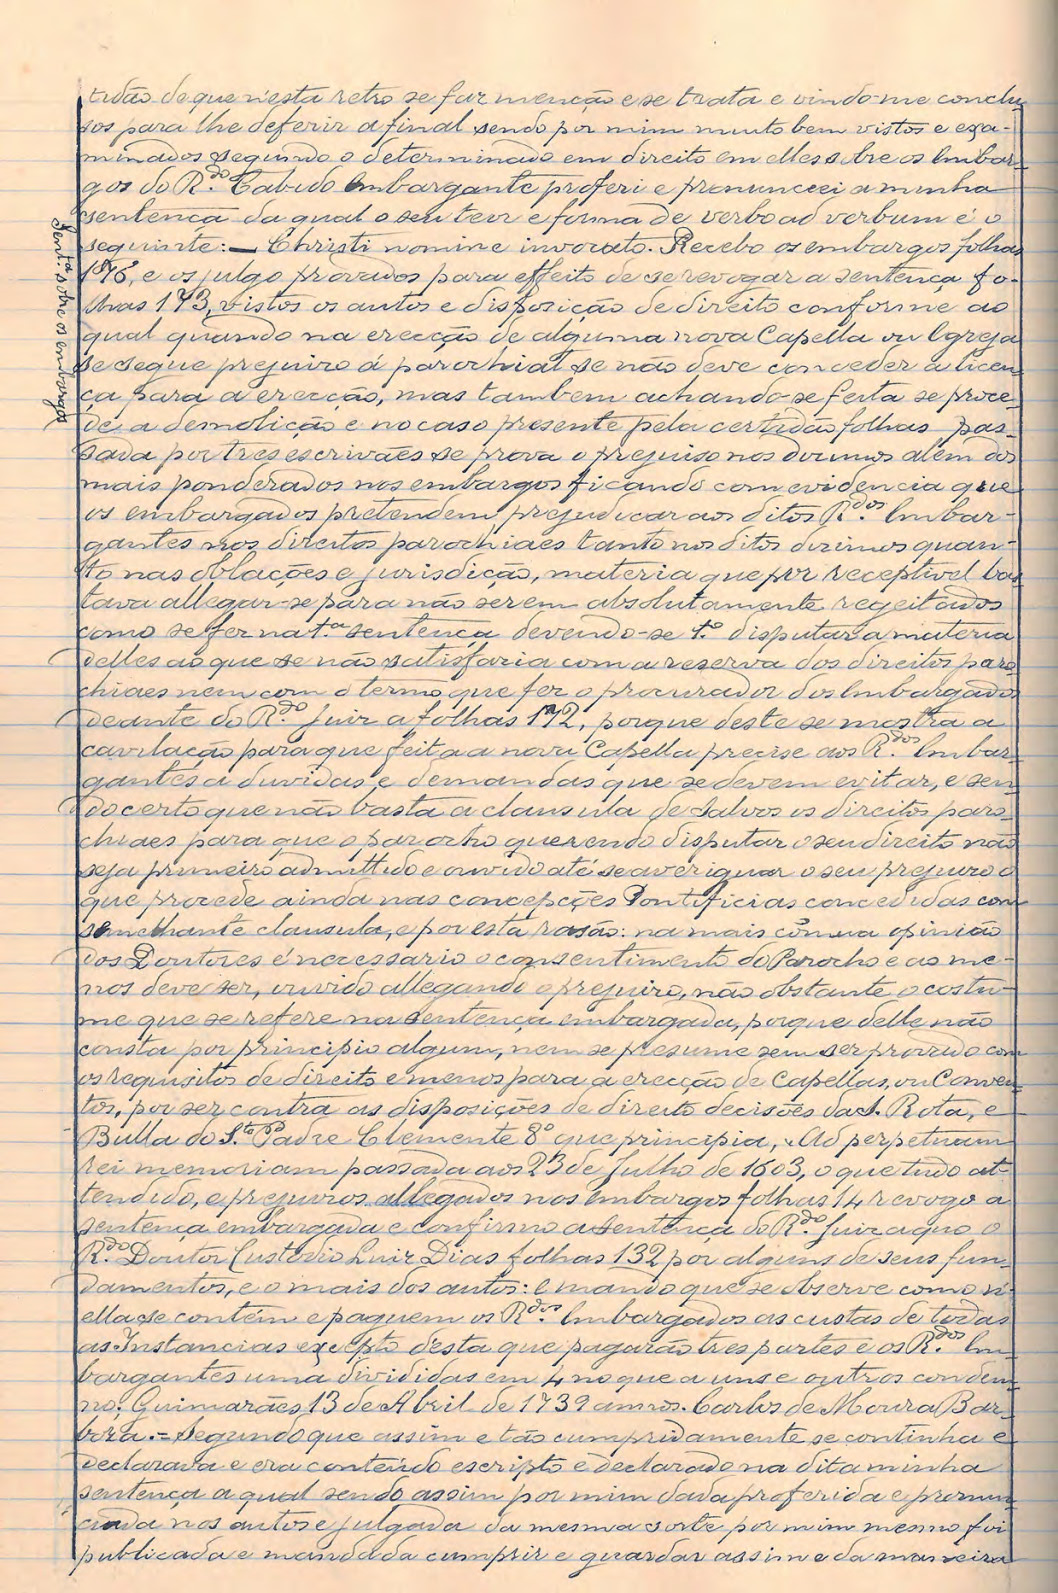 tidão de que n'esta retro se faz menção e se trata e vindo-me conclu-
sos para lhe deferir a final sendo por mim muito bem vistos e exa-
minados segundo o determinado em direito em elles sobre os Embar-
gos do R.do Cabido Embargante proferi e pronunciei a minha
sentença da qual o seu teor e forma de verbo ad verbum é o
seguinte: — Christi nomine invocato. Recebo os embargos folhas
176, e os julgo provados para effeito de se revogar a sentença fo-
lhas 173, vistos os autos e disposição de direito conforme ao
qual quando na erecção de alguma nova Capella ou Egreja
se segue prejuizo á parochial se não deve conceder a licen-
ça para a erecção, mas tambem achando-se feita se proce-
de a demolição e no caso presente pela certidão folhas pas-
sada por tres escrivães se prova o prejuiso nos dizimos alem dos
mais ponderados nos embargos ficando com evidencia que
os embargados pretendem prejudicar aos ditos R.dos Embar-
gantes nos direitos parochiaes tanto nos ditos dizimos quan-
to nas oblações e jurisdicção, materia que por receptivel bas
tava allegar-se para não serem absolutamente regeitados
como se fez na 1.ª sentença devendo-se 1.º disputar a materia
delles ao que se não satisfaria com a reserva dos direitos paro
chiaes nem com o termo que fez o procurador dos Embargados
deante do R.do Juiz a folhas 172, porque deste se mostra a
cavilação para que feita a nova Capella precise aos R.dos Embar-
gantes a duvidas e demandas que se devem evitar, e sen
do certo que não basta a clausula de salvos os direitos paro-
chiaes para que o parocho querendo disputar o seu direito não
seja primeiro admittido e ouvido até se averiguar o seu prejuizo o
que procede ainda nas concepções Pontificias concedidas com
semelhante clausula, e por esta rasão: na mais cômua opinião
dos Doutores é necessario o consentimento do Parocho e ao me-
nos deve ser, ouvido allegando o prejuizo, não obstante o costu-
me que se refere na sentença embargada, porque delle não
consta por principio algum, nem se presume sem ser provado com
os requisitos de direito e menos para a erecção de Capellas, ou Conven-
tos, por ser contra as disposições de direito decisões da S. Rota, e
Bulla do S.to Padre Clemente 8º que principia, "Ad perpetuam
rei memoriam passada aos 23 de Julho de 1603, o que tudo at-
tendido, e prejuizos allegados nos embargos folhas 14 revogo a
sentença embargada e confirmo a sentença do R.do Juiz a quo o
R.do Doutor Custodio Luiz Dias folhas 132 por alguns de seus fun-
damentos, e o mais dos autos: e mando que se observe como n'-
ella se contém e paguem os R.dos Embargados as custas de todas
as Instancias excepto d'esta que pagarão tres partes e os R.dos Em
bargantes uma divididas em 4 no que a uns e outros conden-
no: Guimarães 13 de Abril de 1739 annos. Carlos de Moura Bar-
boza. = Segundo que assim e tão cumpridamente se continha e
declarava e era conteúdo escripto e declarado na dita minha
sentença a qual sendo assim por mim dada proferida e pronun-
ciada nos autos e julgada da mesma sorte por mim mesmo foi
publicada e mandada cumprir e guardar assim e da maneira
Sent.ª sobre os embargos